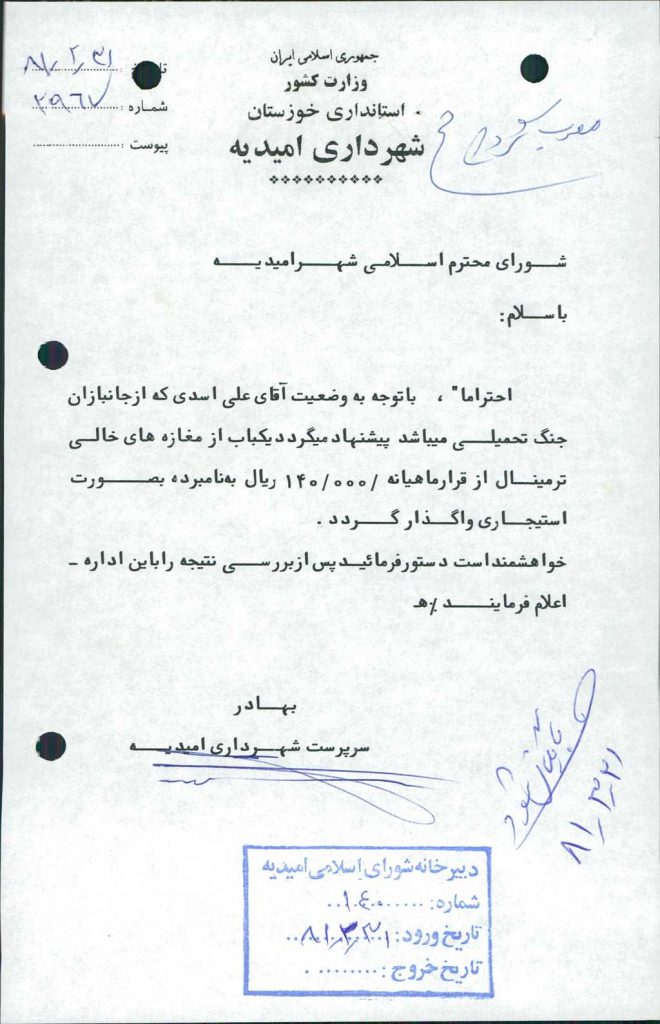 جمهوری اسلامی ایران
وزارت کشور
استانداری خوزستان
شهرداری امیدیه
تاریخ : ۸۱٫۲٫۳۱
شماره : ۲۹۶۷
پیوست :
شورای محترم اسلامی شهرامیدیه
باسلام:
احتراما" ، باتوجه به وضعیت آقای علی اسدی که ازجانبازان
جنگ تحمیلی میباشد پیشنهاد میگردد یکباب از مغازه های خالی
ترمینال از قرارماهیانه /۱۴۰/۰۰۰ ریال به‌نامبرده بصورت
استیجاری واگذار گردد .
خواهشمنداست دستورفرمائید پس ازبررسی نتیجه رابا‌ین اداره ـ
اعلام فرمایند /.ه
بهادر
سرپرست شهرداری امیدیه
شود
۸۱٫۳٫۲۱
دبیرخانه شورای اسلامی امیدیه
شماره: ۱۴۰۰
تاریخ ورود: ۸۱٫۳٫۲۱
تاریخ خروج :